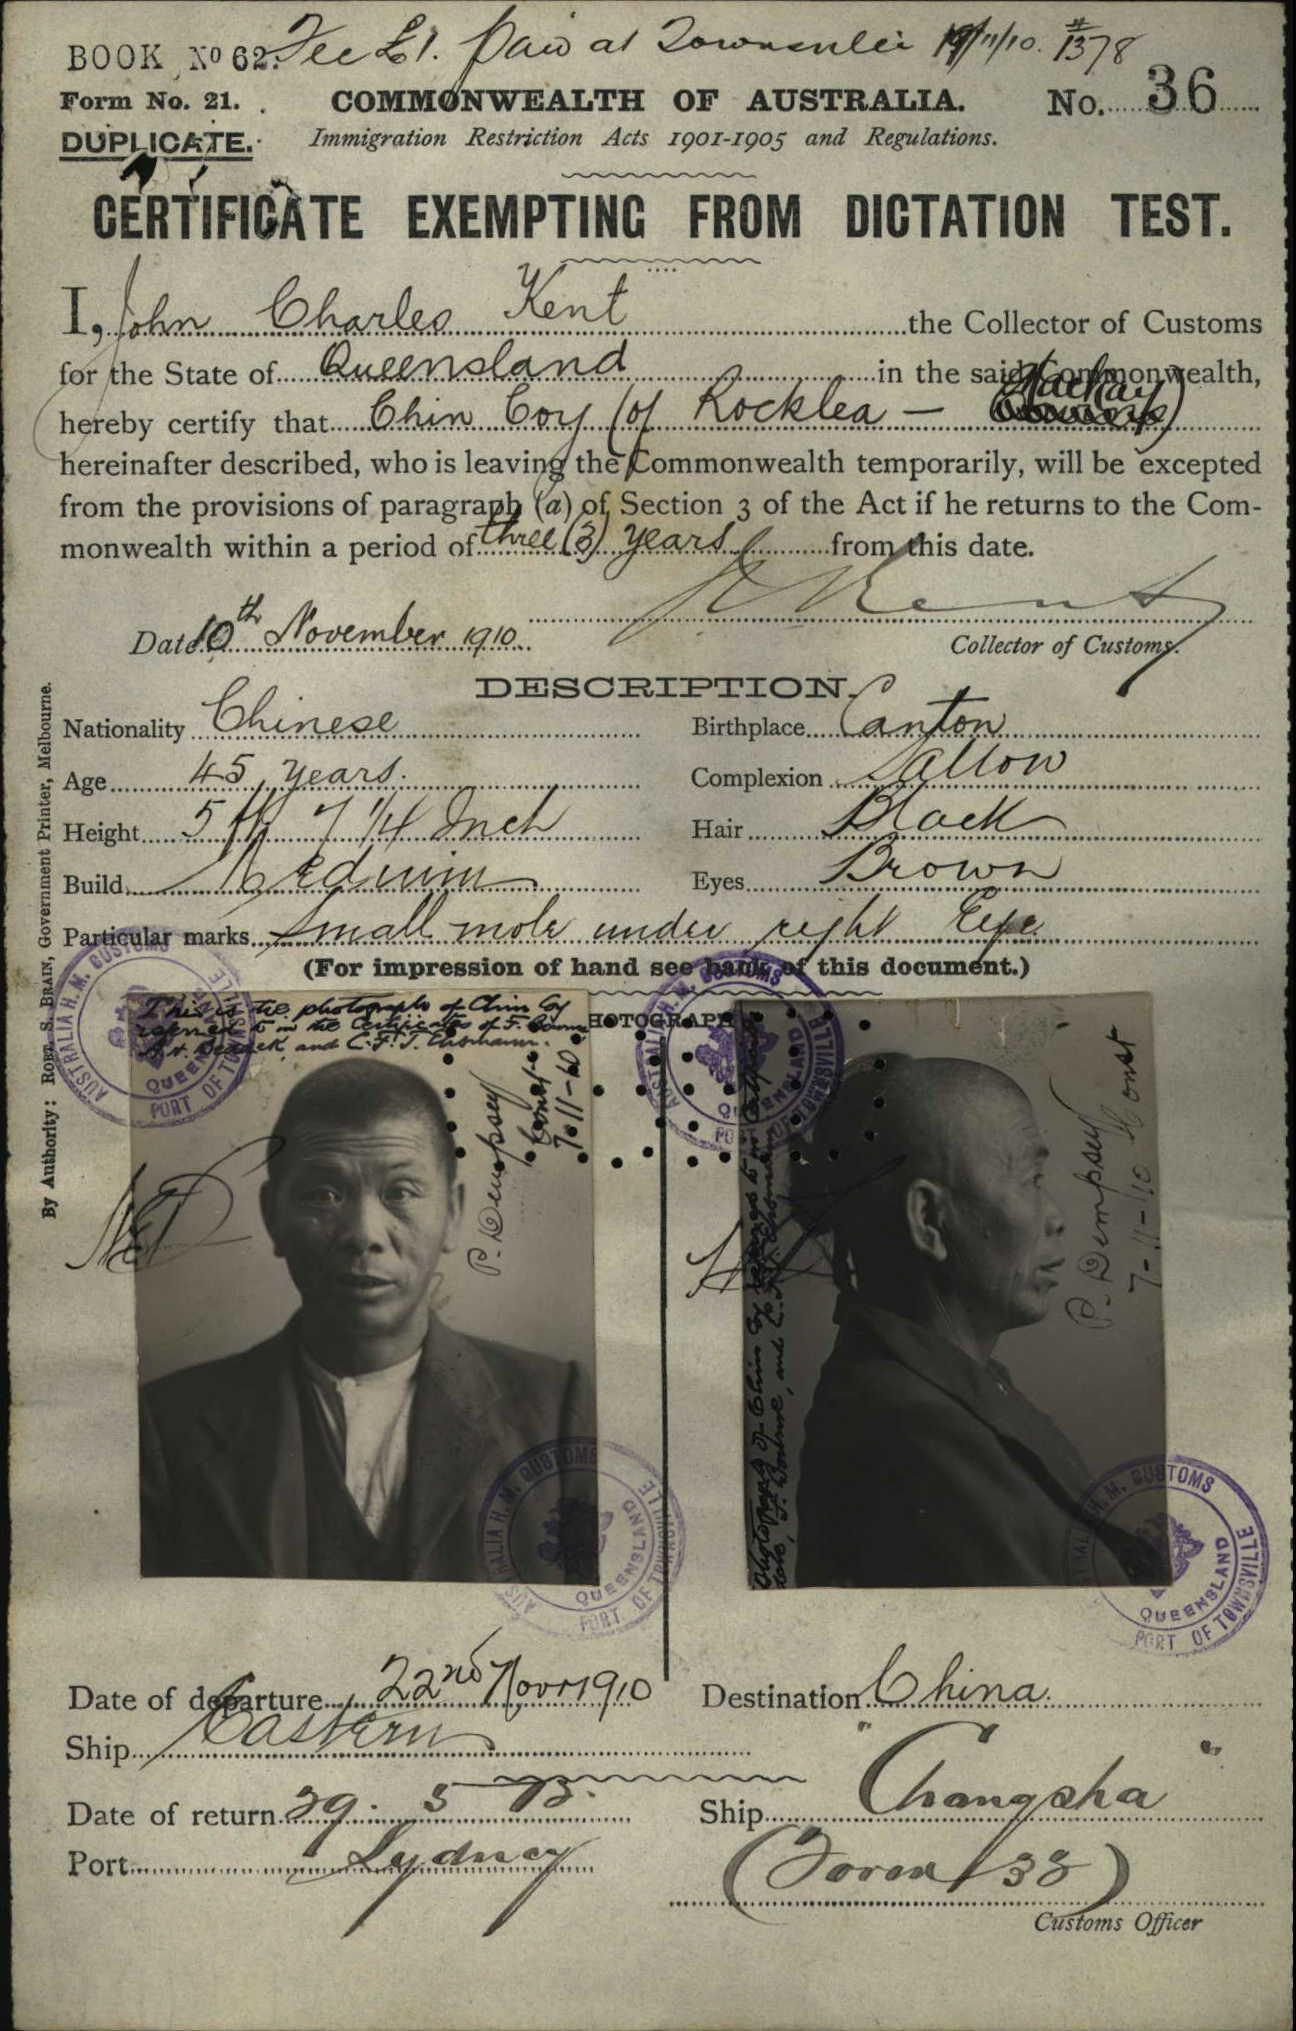 BOOK No 62. Fee £1. Paid at Townsville 19/11/10. # 1378
Form No. 21. COMMONWEALTH OF AUSTRALIA. No. 36
DUPLICATE. Immigration Restriction Acts 1901-1905 and Regulations.
CERTIFICATE EXEMPTING FROM DICTATION TEST.
I, John Charles Kent the Collector of Customs
for the State of Queensland in the said Commonwealth,
hereby certify that Chin Coy (of Rocklea — Mackay)
hereinafter described, who is leaving the Commonwealth temporarily, will be excepted
from the provisions of paragraph (a) of Section 3 of the Act if he returns to the Com-
monwealth within a period of three (3) years from this date.
Kent
Date 10th November 1910. Collector of Customs.
DESCRIPTION
Nationality Chinese Birthplace Canton
Age 45 years. Complexion Sallow
Height 5 ft 7 1/4 Inch Hair Black
Build Medium Eyes Brown
Particular marks Small mole under right Eye
(For impression of hand see back of this document.)
PHOTOGRAPH
This is the photograph of Chin Coy
referred to in the Certificates of F.
and C. F. T.
P. Dempsey
Const
7-11-10
P. Dempsey Const
7-11-10
Photograph of Chin Coy referred to in Certificates
AUSTRALIA H.M. CUSTOMS
QUEENSLAND
PORT OF TOWNSVILLE
AUSTRALIA H.M. CUSTOMS
QUEENSLAND
PORT OF TOWNSVILLE
AUSTRALIA H.M. CUSTOMS
QUEENSLAND
PORT OF TOWNSVILLE
AUSTRALIA H.M. CUSTOMS
QUEENSLAND
PORT OF TOWNSVILLE
By Authority: ROBT. S. BRAIN, Government Printer, Melbourne.
Date of departure 22nd Novr 1910 Destination China.
Ship Eastern
Date of return 29. 5 13. Ship "Changsha"
Port Sydney (Form 32)
Customs Officer